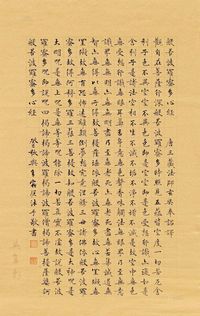 般若波羅蜜多心經 唐三藏法師玄奘奉詔譯
觀自在菩薩行深般若波羅蜜多時照見五蘊皆空度一切苦厄舍
利子色不異空空不異色色即是空空即是色受想行識亦復如是
舍利子是諸法空相不生不滅不垢不淨不增不減是故空中無色
無受想行識無眼耳鼻舌身意無色聲香味觸法無眼界乃至無意
識界無無明亦無無明盡乃至無老死亦無老死盡無苦集滅道無
智亦無得以無所得故菩提薩埵依般若波羅蜜多故心無罣礙無
罣礙故無有恐怖遠離顛倒夢想究竟涅槃三世諸佛依般若波羅
蜜多故得阿耨多羅三藐三菩提故知般若波羅蜜多是大神咒是
大明咒是無上咒是無等等咒能除一切苦真實不虛故說般若波
羅蜜多咒即說咒曰揭諦揭諦波羅揭諦波羅僧揭諦菩提薩婆訶
般若波羅蜜多心經
敬書